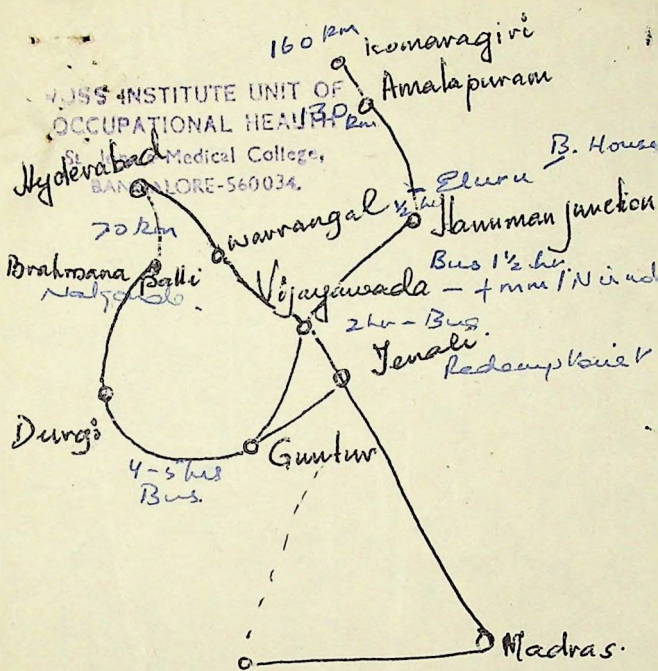 160 km
Komaragiri
Amalapuram
130 km
ROSS INSTITUTE UNIT OF
OCCUPATIONAL HEALTH
St. John's Medical College,
BANGALORE-560034.
Hyderabad
70 km
Warrangal
- Eluru
B. House
½ hr
Hanuman junction
Brahmana Palli
Nalgonda
Bus 1½ hr.
Vijayawada
2hr - Bus.
Tenali
Redemptorist
Durgi
Guntur
4-5 hrs
Bus.
Madras.